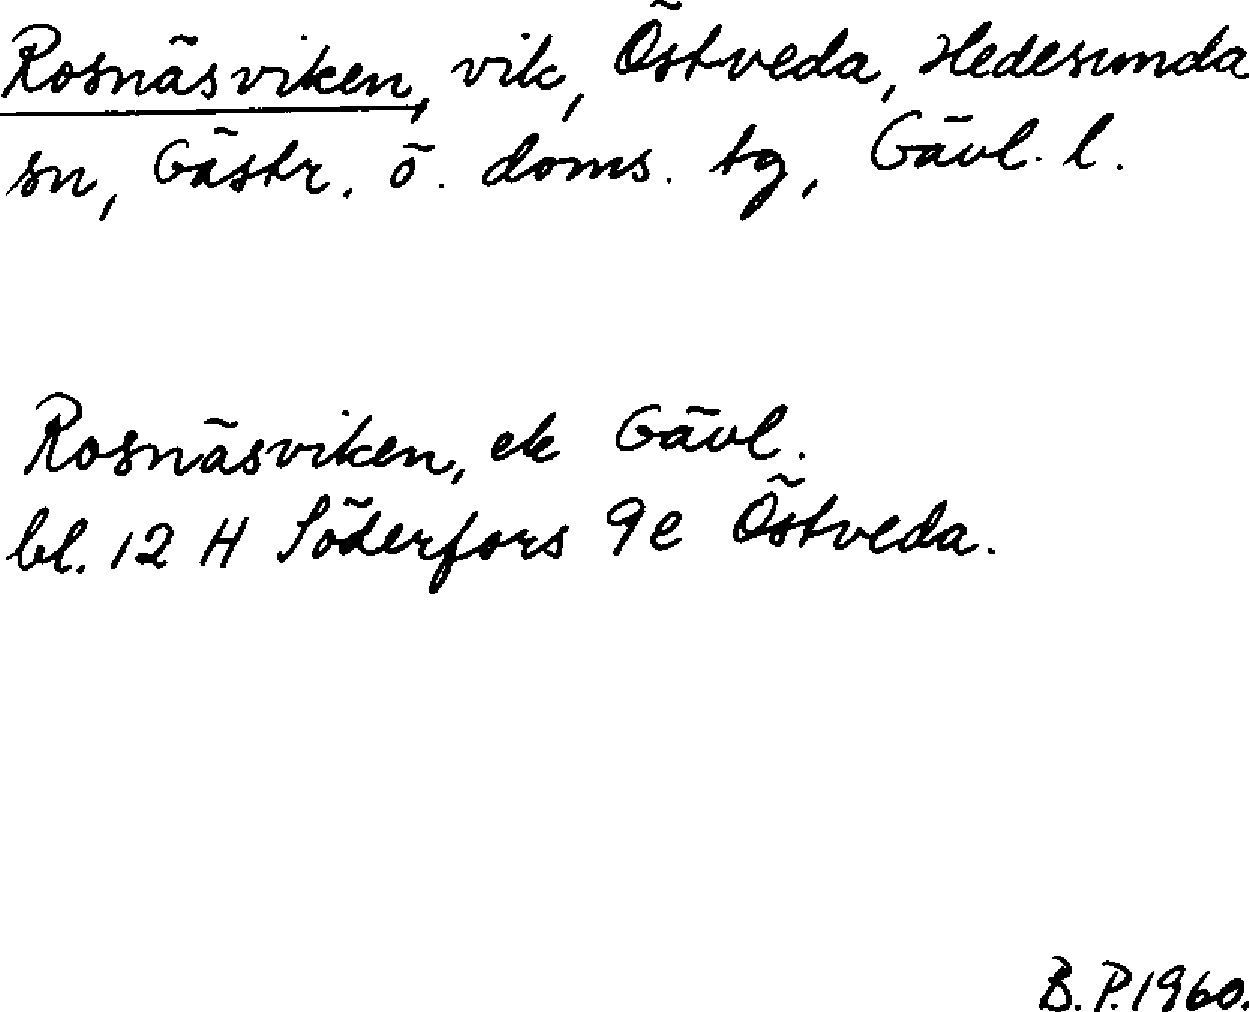 Rosnäsviken, vik, Östveda, Hedesunda
sn, Gästr. ö. doms. tg, Gävl. l.
Rosnäsviken, ek Gävl.
bl. 12 H Söderfors 9 e Östveda.
B. P. 1960.